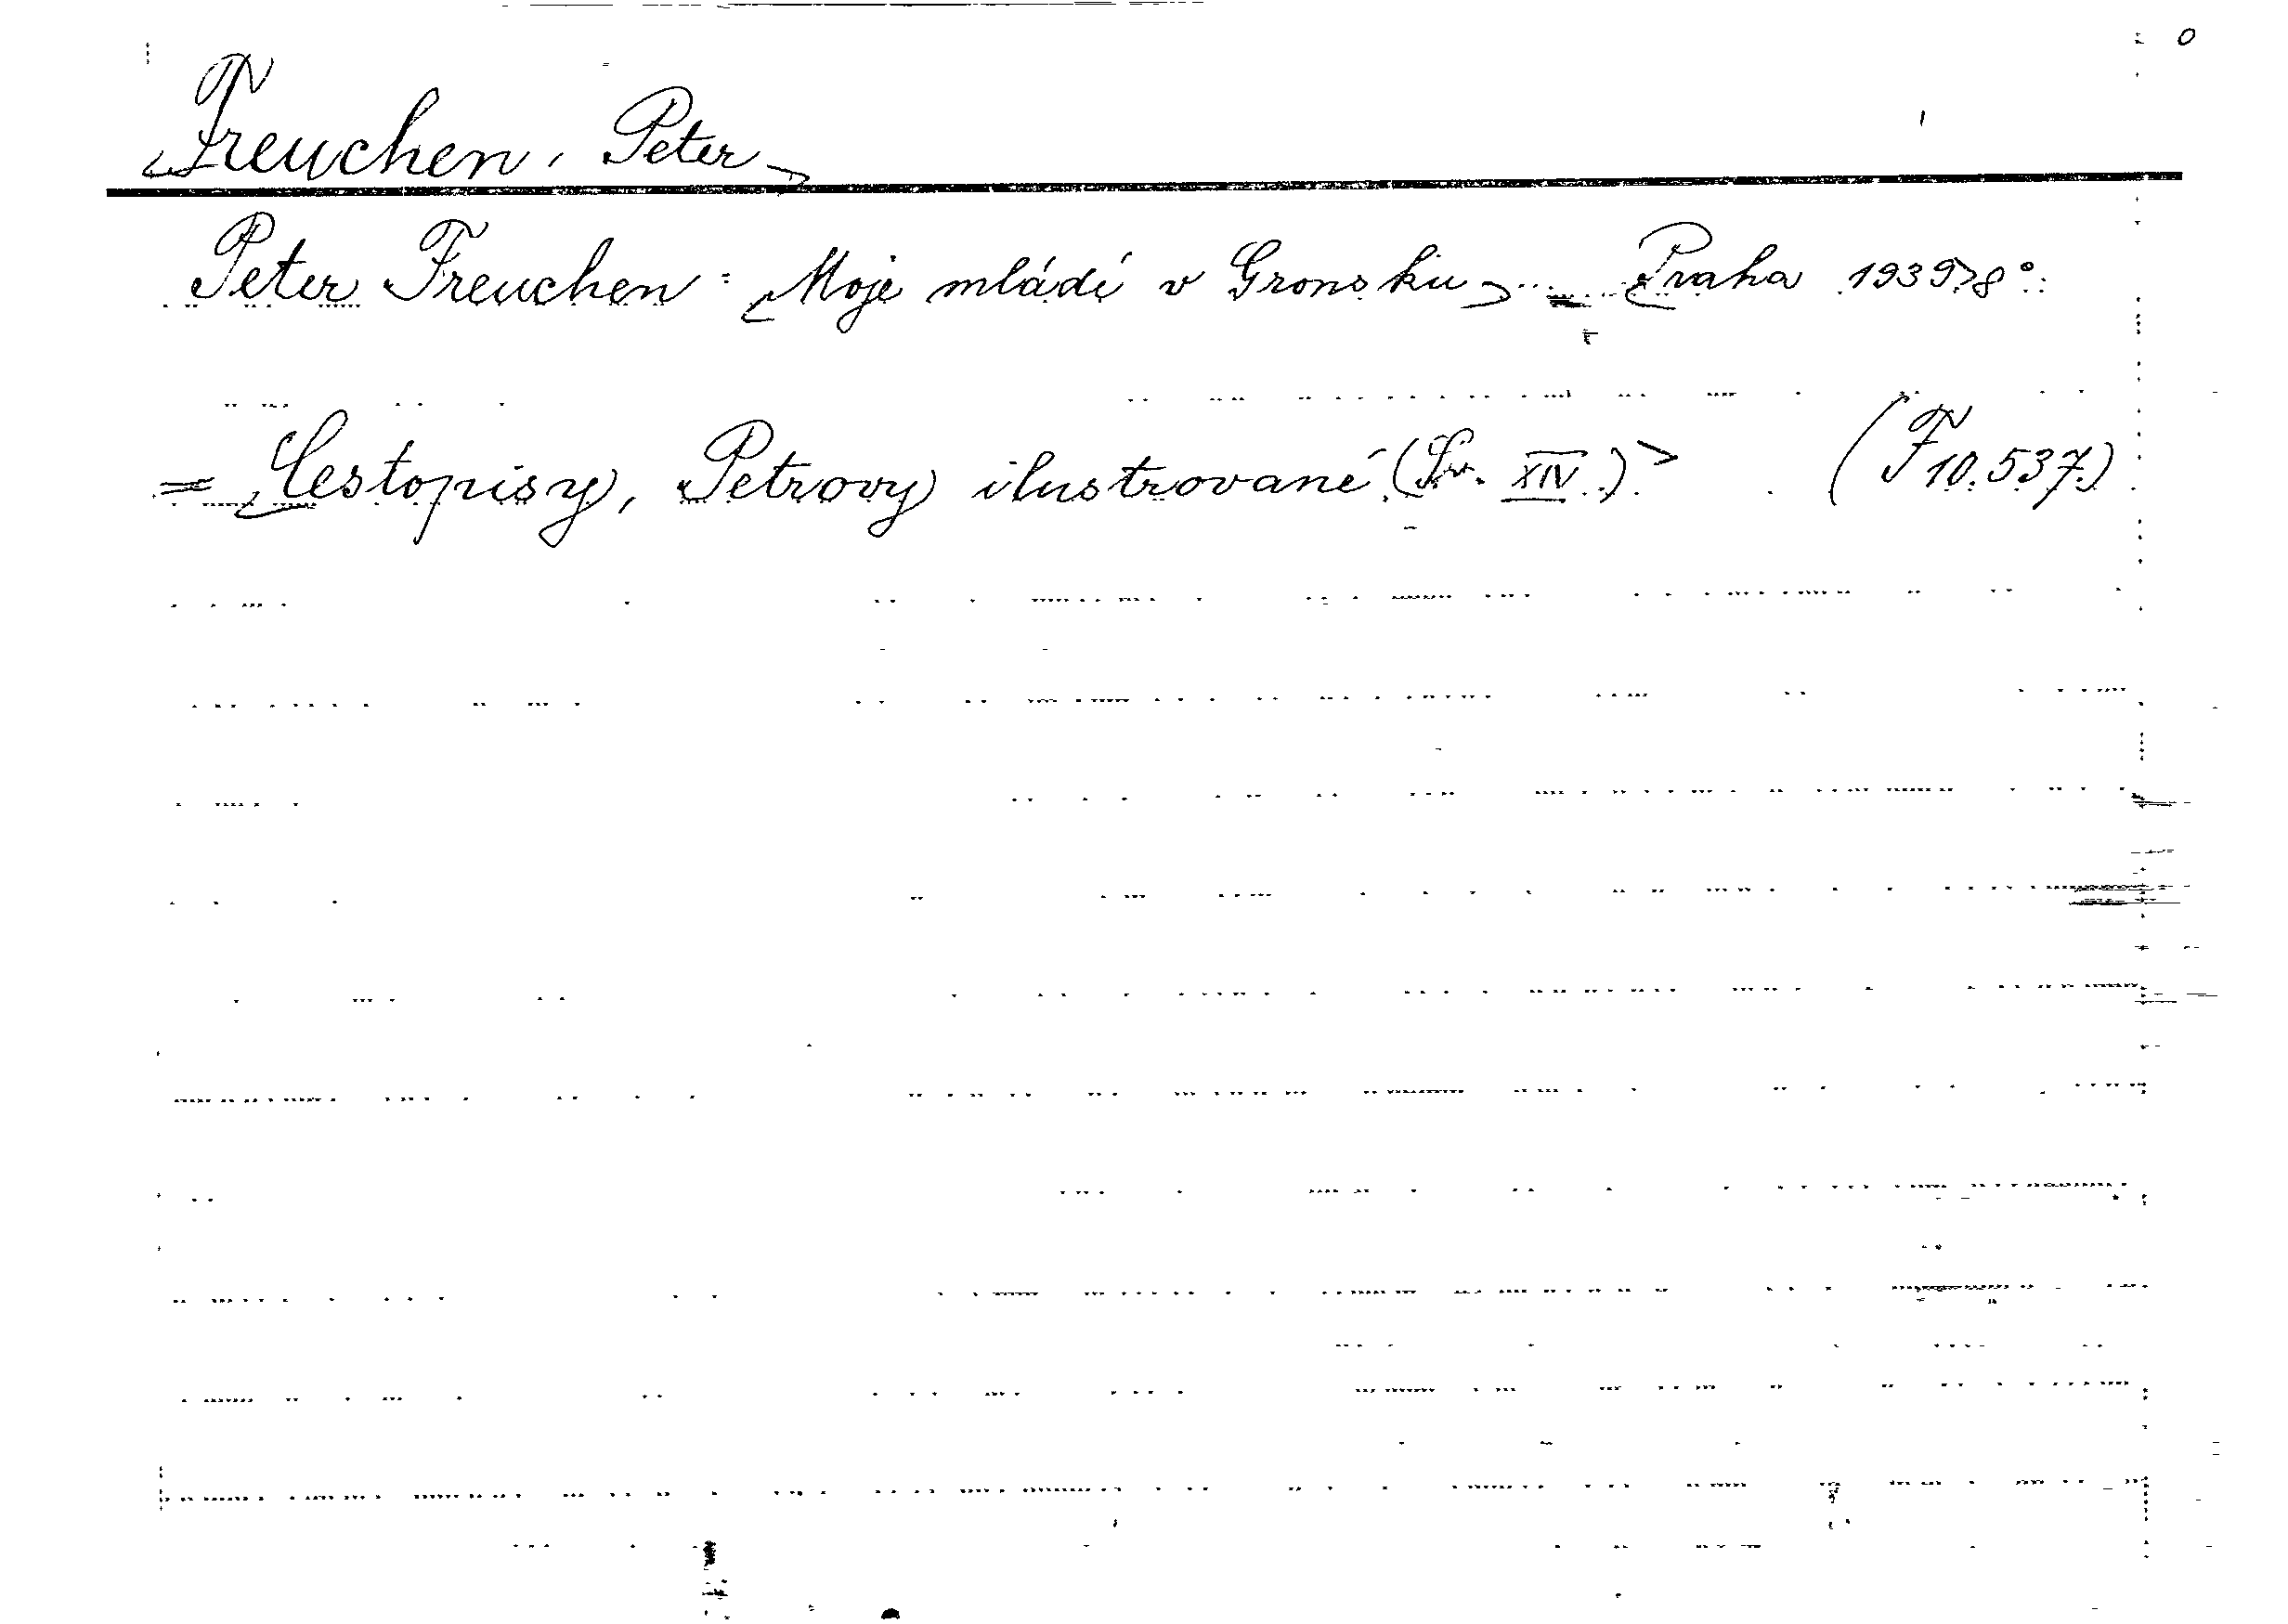 <Freuchen, Peter>
Peter Freuchen: <Moje mládí v Gronsku> - <Praha 1939> 8°.
= <Cestopisy, Petrovy ilustrované (Sv. XIV.)> (F 10.537)